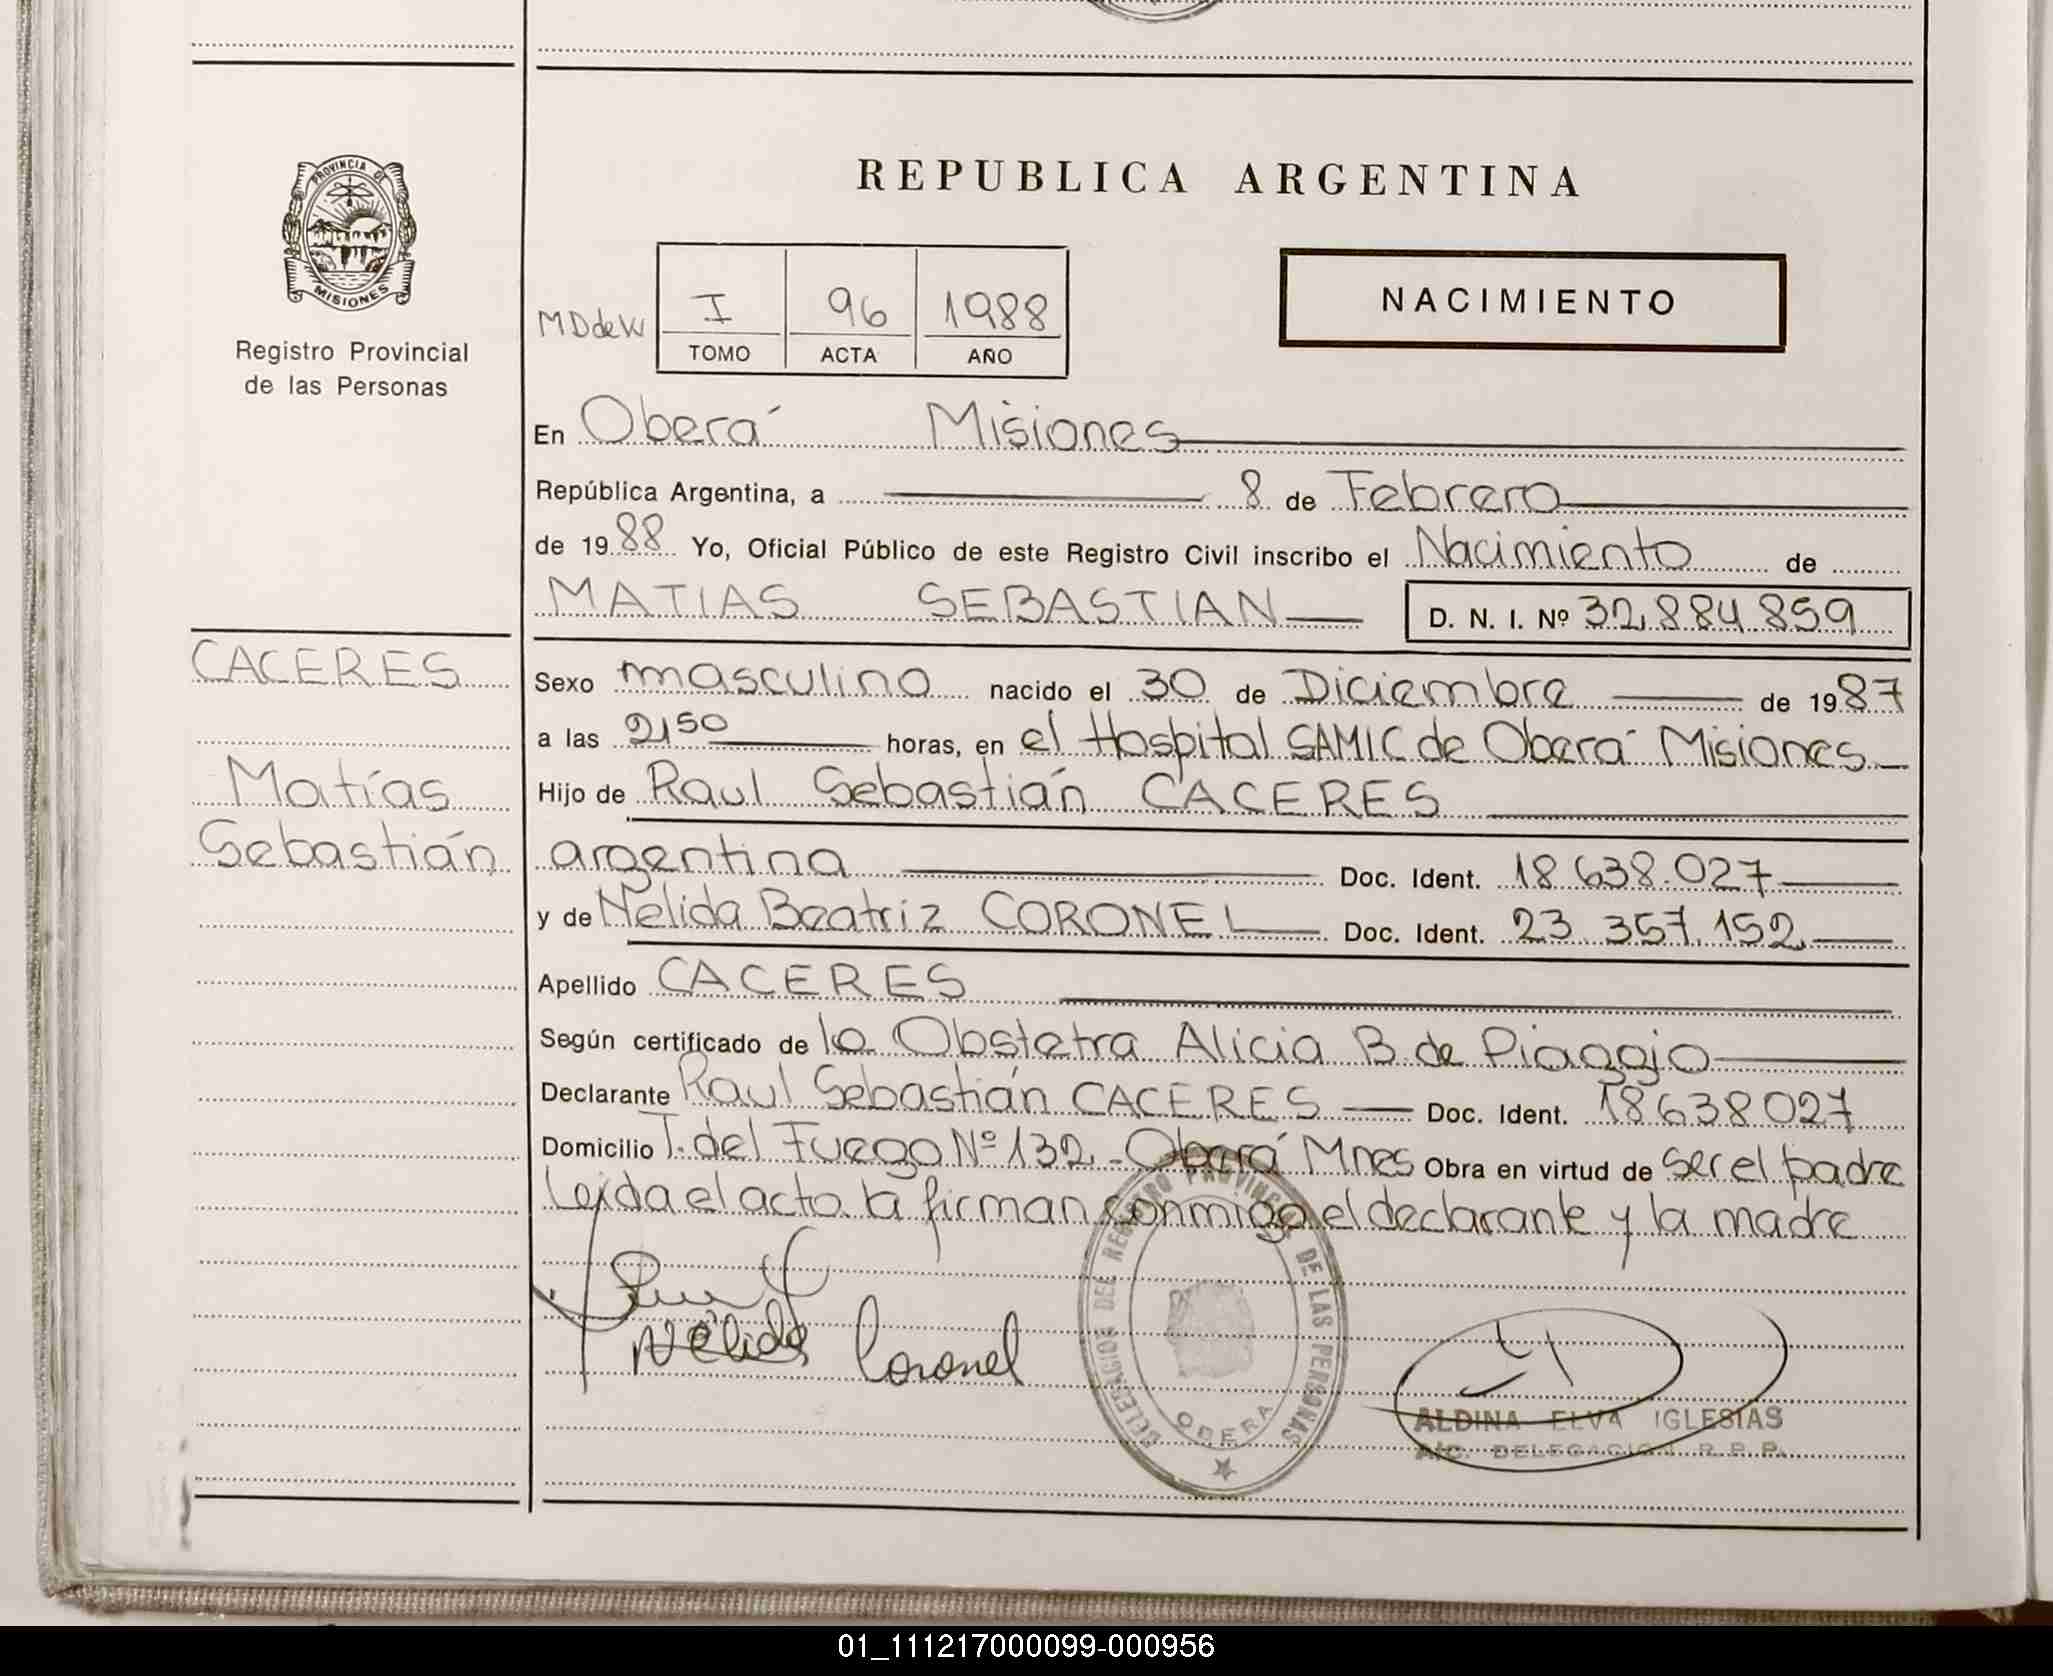 PROVINCIA DE
MISIONES
Registro Provincial
de las Personas
REPUBLICA ARGENTINA
MDdeW
I 96 1988
TOMO ACTA AÑO
NACIMIENTO
En Oberá Misiones
República Argentina, a 8 de Febrero
de 1988 Yo, Oficial Público de este Registro Civil inscribo el Nacimiento de
MATIAS SEBASTIAN D. N. I. Nº 32,884.859
CACERES
Matías
Sebastián
Sexo masculino nacido el 30 de Diciembre de 1987
a las 2150 horas, en el Hospital SAMIC de Oberá Misiones
Hijo de Raul Sebastián CACERES
argentina Doc. Ident. 18.638.027
y de Nélida Beatriz CORONEL Doc. Ident. 23.357.152
Apellido CACERES
Según certificado de la Obstetra Alicia B. de Piaggio
Declarante Raul Sebastián CACERES Doc. Ident. 18638027
Domicilio T. del Fuego Nº 132 - Oberá Mnes Obra en virtud de ser el padre
Leida el acta la firman conmigo el declarante y la madre
Nélida Coronel
DELEGACION DEL REGISTRO PROVINCIAL DE LAS PERSONAS
OBERA
ALDINA ELVA IGLESIAS
A/C. DELEGACION R. P. P.
01_111217000099-000956